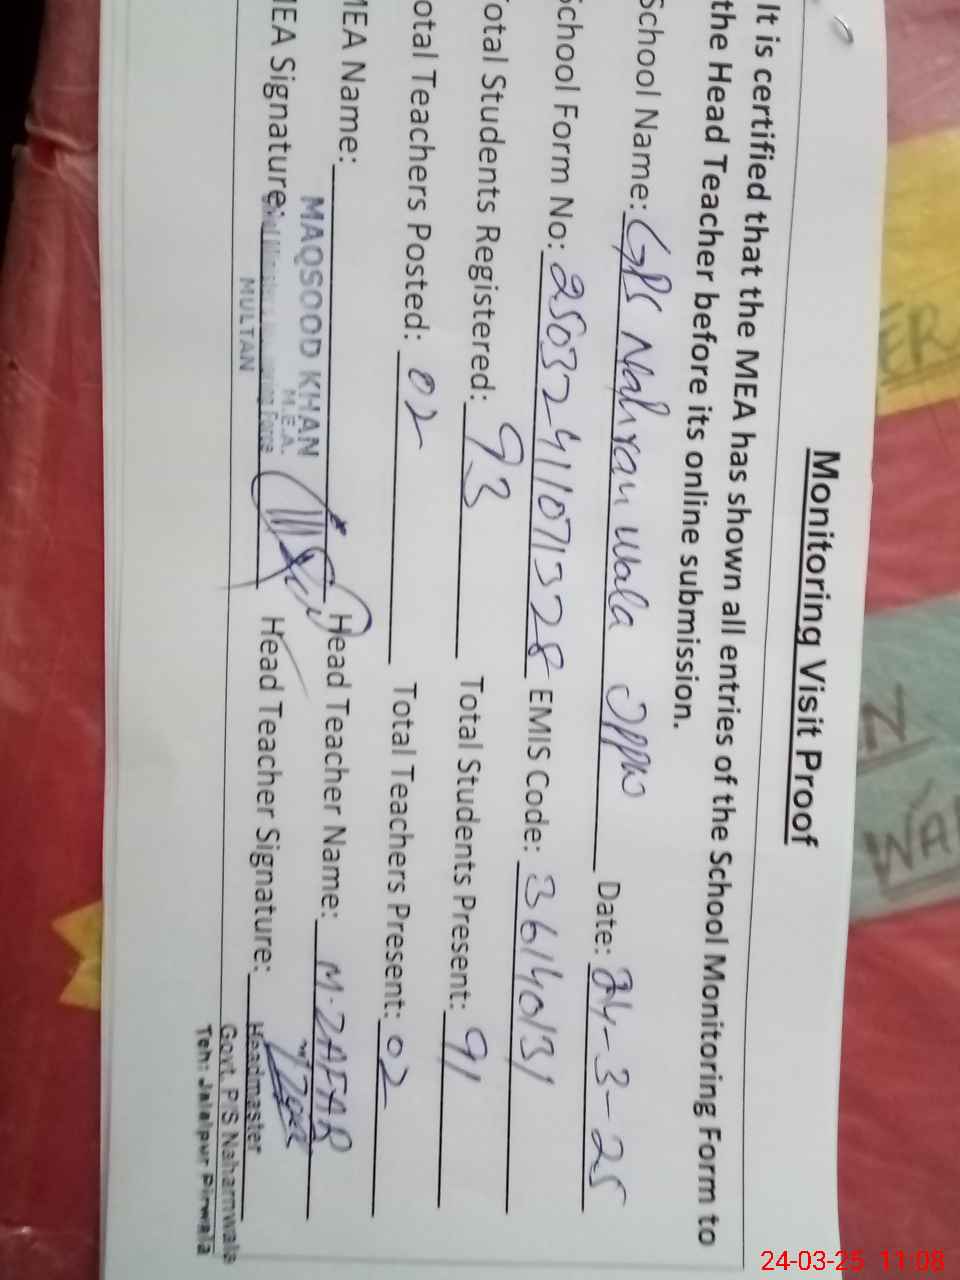 Monitoring Visit Proof
It is certified that the MEA has shown all entries of the School Monitoring Form to
the Head Teacher before its online submission.
School Name: GPS Nahran wala Date: 24-3-25
School Form No: 25032411071328 EMIS Code: 36140131
Total Students Registered: 93 Total Students Present: 91
otal Teachers Posted: 02 Total Teachers Present: 02
MEA Name: MAQSOOD KHAN Head Teacher Name: M. ZAFAR
M.E.A.
MEA Signature: Head Teacher Signature:
MULTAN
Headmaster
Govt. P/S Naharnwala
Teh: Jalalpur Pirwala
ER
N
WA
24-03-25 11:08